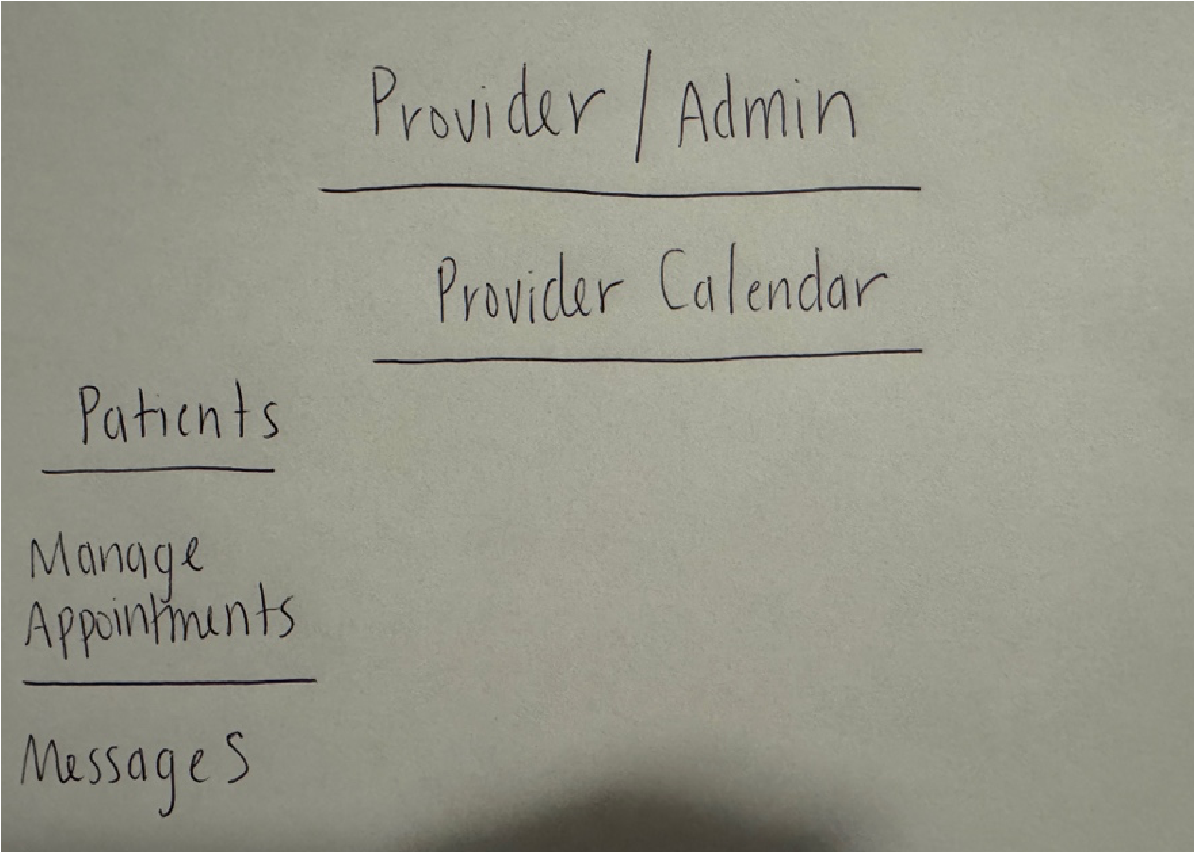 Provider / Admin
Provider Calendar
Patients
Manage
Appointments
Messages